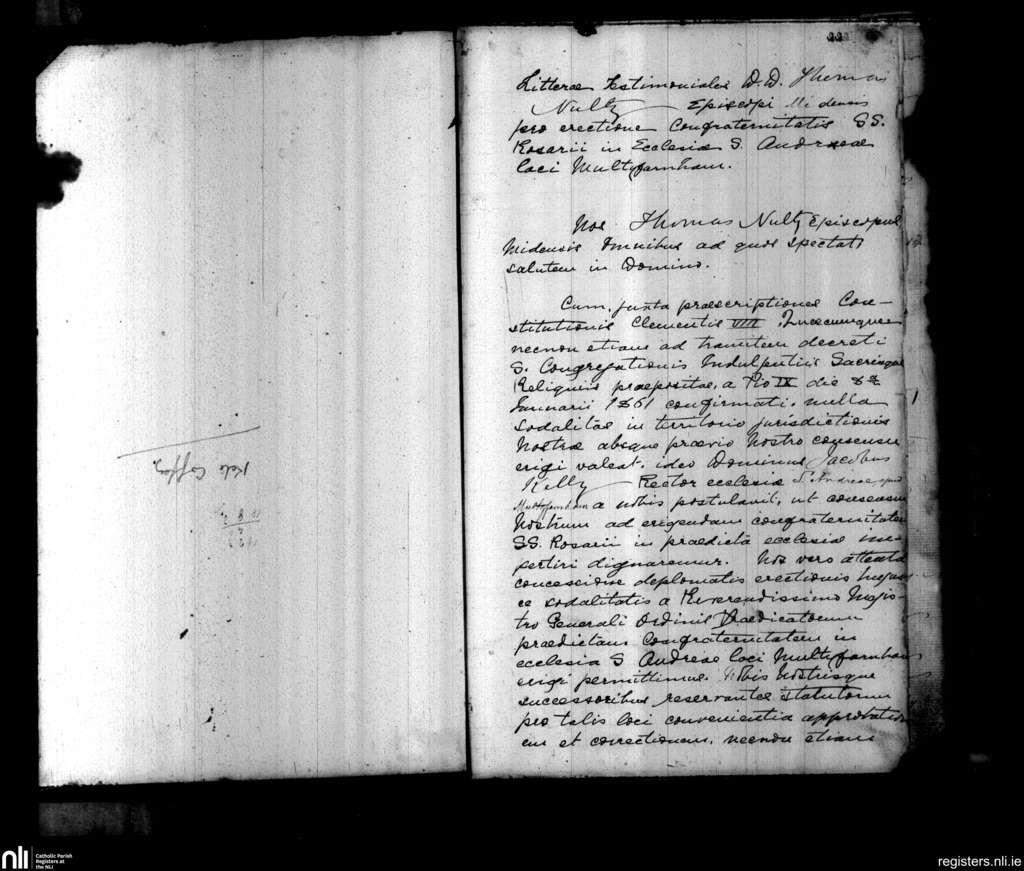 222
Litterae testimoniales D.D. Thomas
Nulty Episcopi Midensis
pro erectione Confraternitatis SS.
Rosarii in Ecclesia S. Andreae
loci Multyfarnham.
Nos Thomas Nulty Episcopus
Midensis Omnibus ad quos spectat
salutem in Domino.
Cum juxta praescriptiones Con-
stitutionis Clementis VIII Quaecumque
necnon etiam ad tramitem decreti
S. Congregationis Indulgentiis Sacrisque
Reliquiis praepositae, a Pio IX die 8ae
Januarii 1861 confirmati, nulla
sodalitas in territorio jurisdictionis
Nostrae absque praevio Nostro consensu
erigi valeat, ideo Dominus Jacobus
Kelly Rector ecclesiae S. Andreae, apud
Multyfarnham a nobis postulavit, ut consensum
Nostrum ad erigendam confraternitatem
SS. Rosarii in praedicta ecclesia im-
pertiri dignaremur. Nos vero attenta
concessione deplomatis erectionis hujus
ce sodalitatis a Reverendissimo Magis-
tro Generali Ordinis Praedicatorum
praedictam Confraternitatem in
ecclesia S Andreae loci Multyfarnham
erigi permittimus. Nobis Nostrisque
successoribus reservantes statutorum
pro talis loci convenientia approbation
em et correctionem, necnon etiam
nli
Catholic Parish
Registers at
the NLI
registers.nli.ie